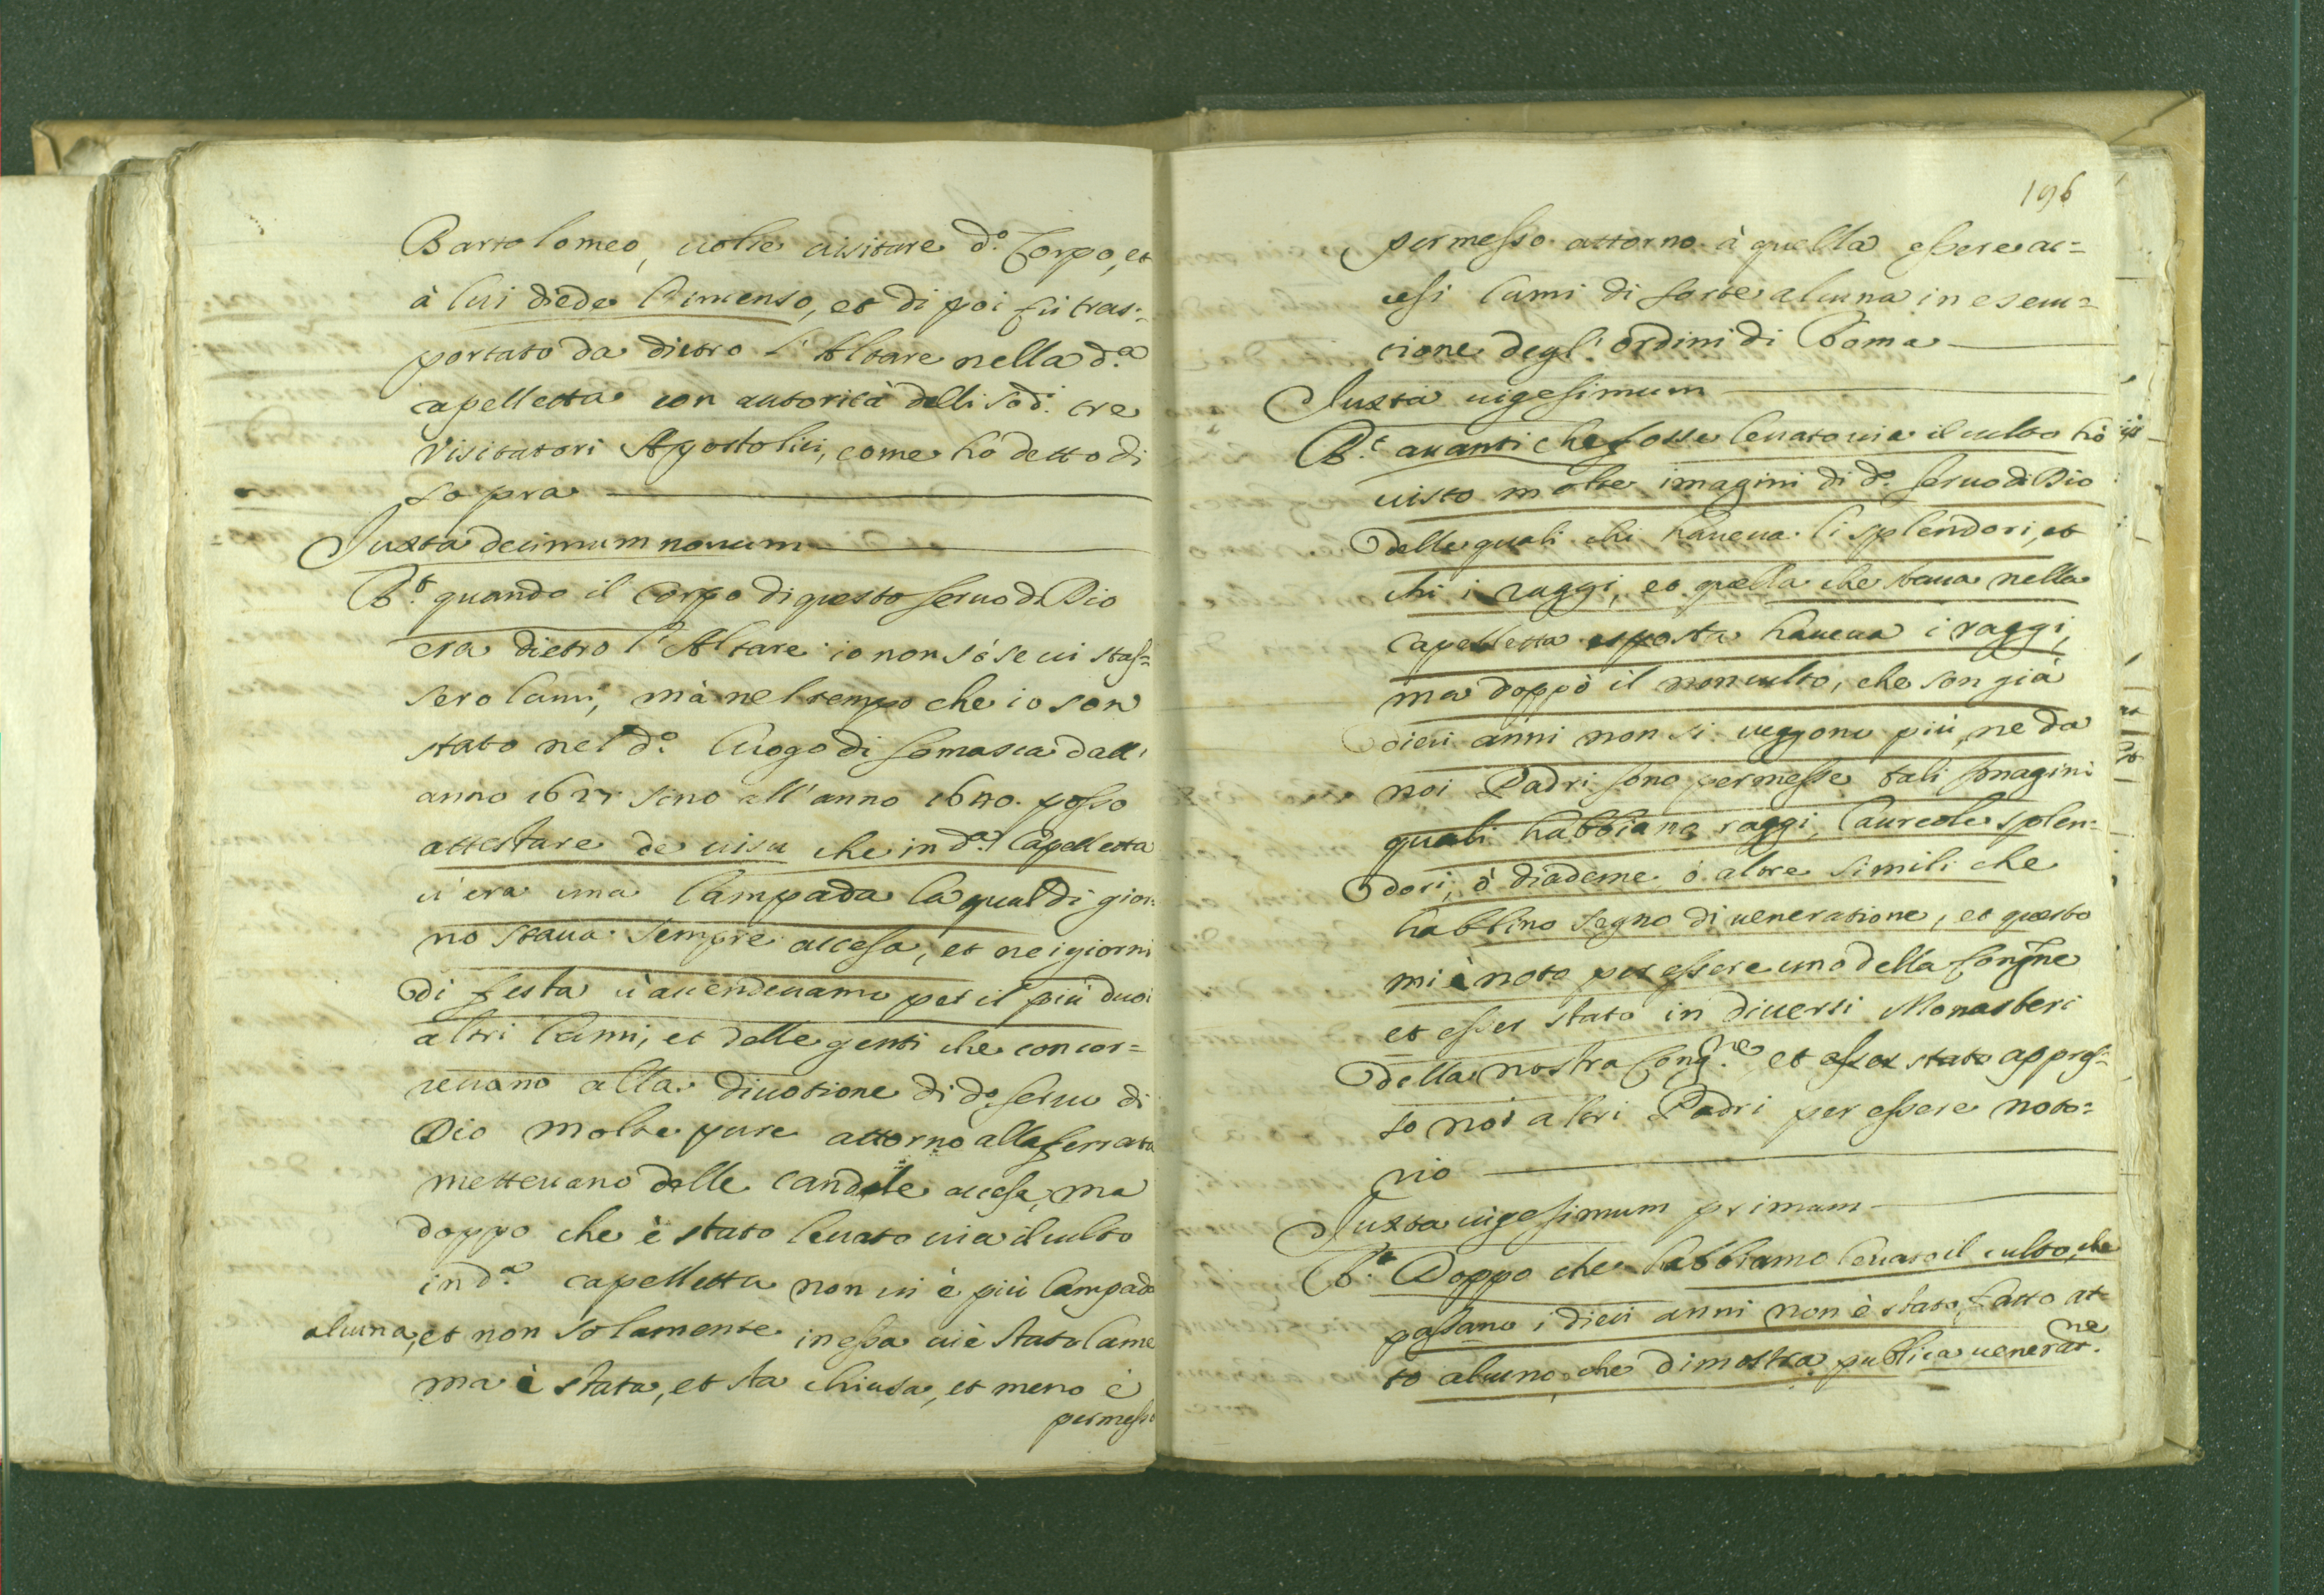 Bartolomeo, uolse uisitare d.º Corpo, et
à lui diede l'incenso, et di poi fù tras=
portato da dietro l'Altare nella d.ª
capelletta con autorità delli sod.i tre
Visitatori Apostolici, come hò detto di
sopra
Juxta decimum nonum
R.t quando il Corpo di questo seruo di Dio
era dietro l'Altare io non sò se ui stas=
sero lumi, mà nel tempo che io son
stato nel d.º luogo di Somasca dall'
anno 1627 sino all'anno 1640. posso
attestare de uisu che in d.ª Capelletta
u'era una lampada la qual di gior=
no staua sempre accesa, et ne i giorni
di festa u'accendeuamo per il più duoi
altri lumi, et delle genti che concor=
reuano alla diuotione di d.º seruo di
Dio molte pure attorno alla ferrata
metteuano delle candele accese, ma
doppo che è stato leuato uia il culto
in d.ª capelletta non ui è più lampada
alcuna, et non solamente in essa ui è stato lume
ma è stata, et sta chiusa, et meno è
permesso
196
permesso attorno à quella essere ac=
cesi lumi di sorte alcuna in esecu=
tione degl'ordini di Roma
Juxta uigesimum
R.t auanti che fosse leuato uia il culto hò
uisto molte imagini di d.º seruo di Dio
delle quali chi haueua li splendori, et
chi i raggi, et quella che staua nella
Capelletta esposta haueua i raggi,
ma doppò il non culto, che son già
dieci anni non si ueggono più, ne da
noi Padri sono permesse tali Imagini
quali habbiano raggi, laureole splen=
dori, ò diademe, ò altre simili che
habbino segno di ueneratione, et questo
mi è noto per essere uno della Congne
et esser stato in diuersi Monasteri
della nostra Cong.ne et esser stato appres=
so noi altri Padri per essere noto=
rio
Juxta uigesimum primum
R.t Doppo che habbiamo leuato il culto, che
passano i dieci anni non è stato fatto at=
to alcuno, che dimostra publica uenerat.ne